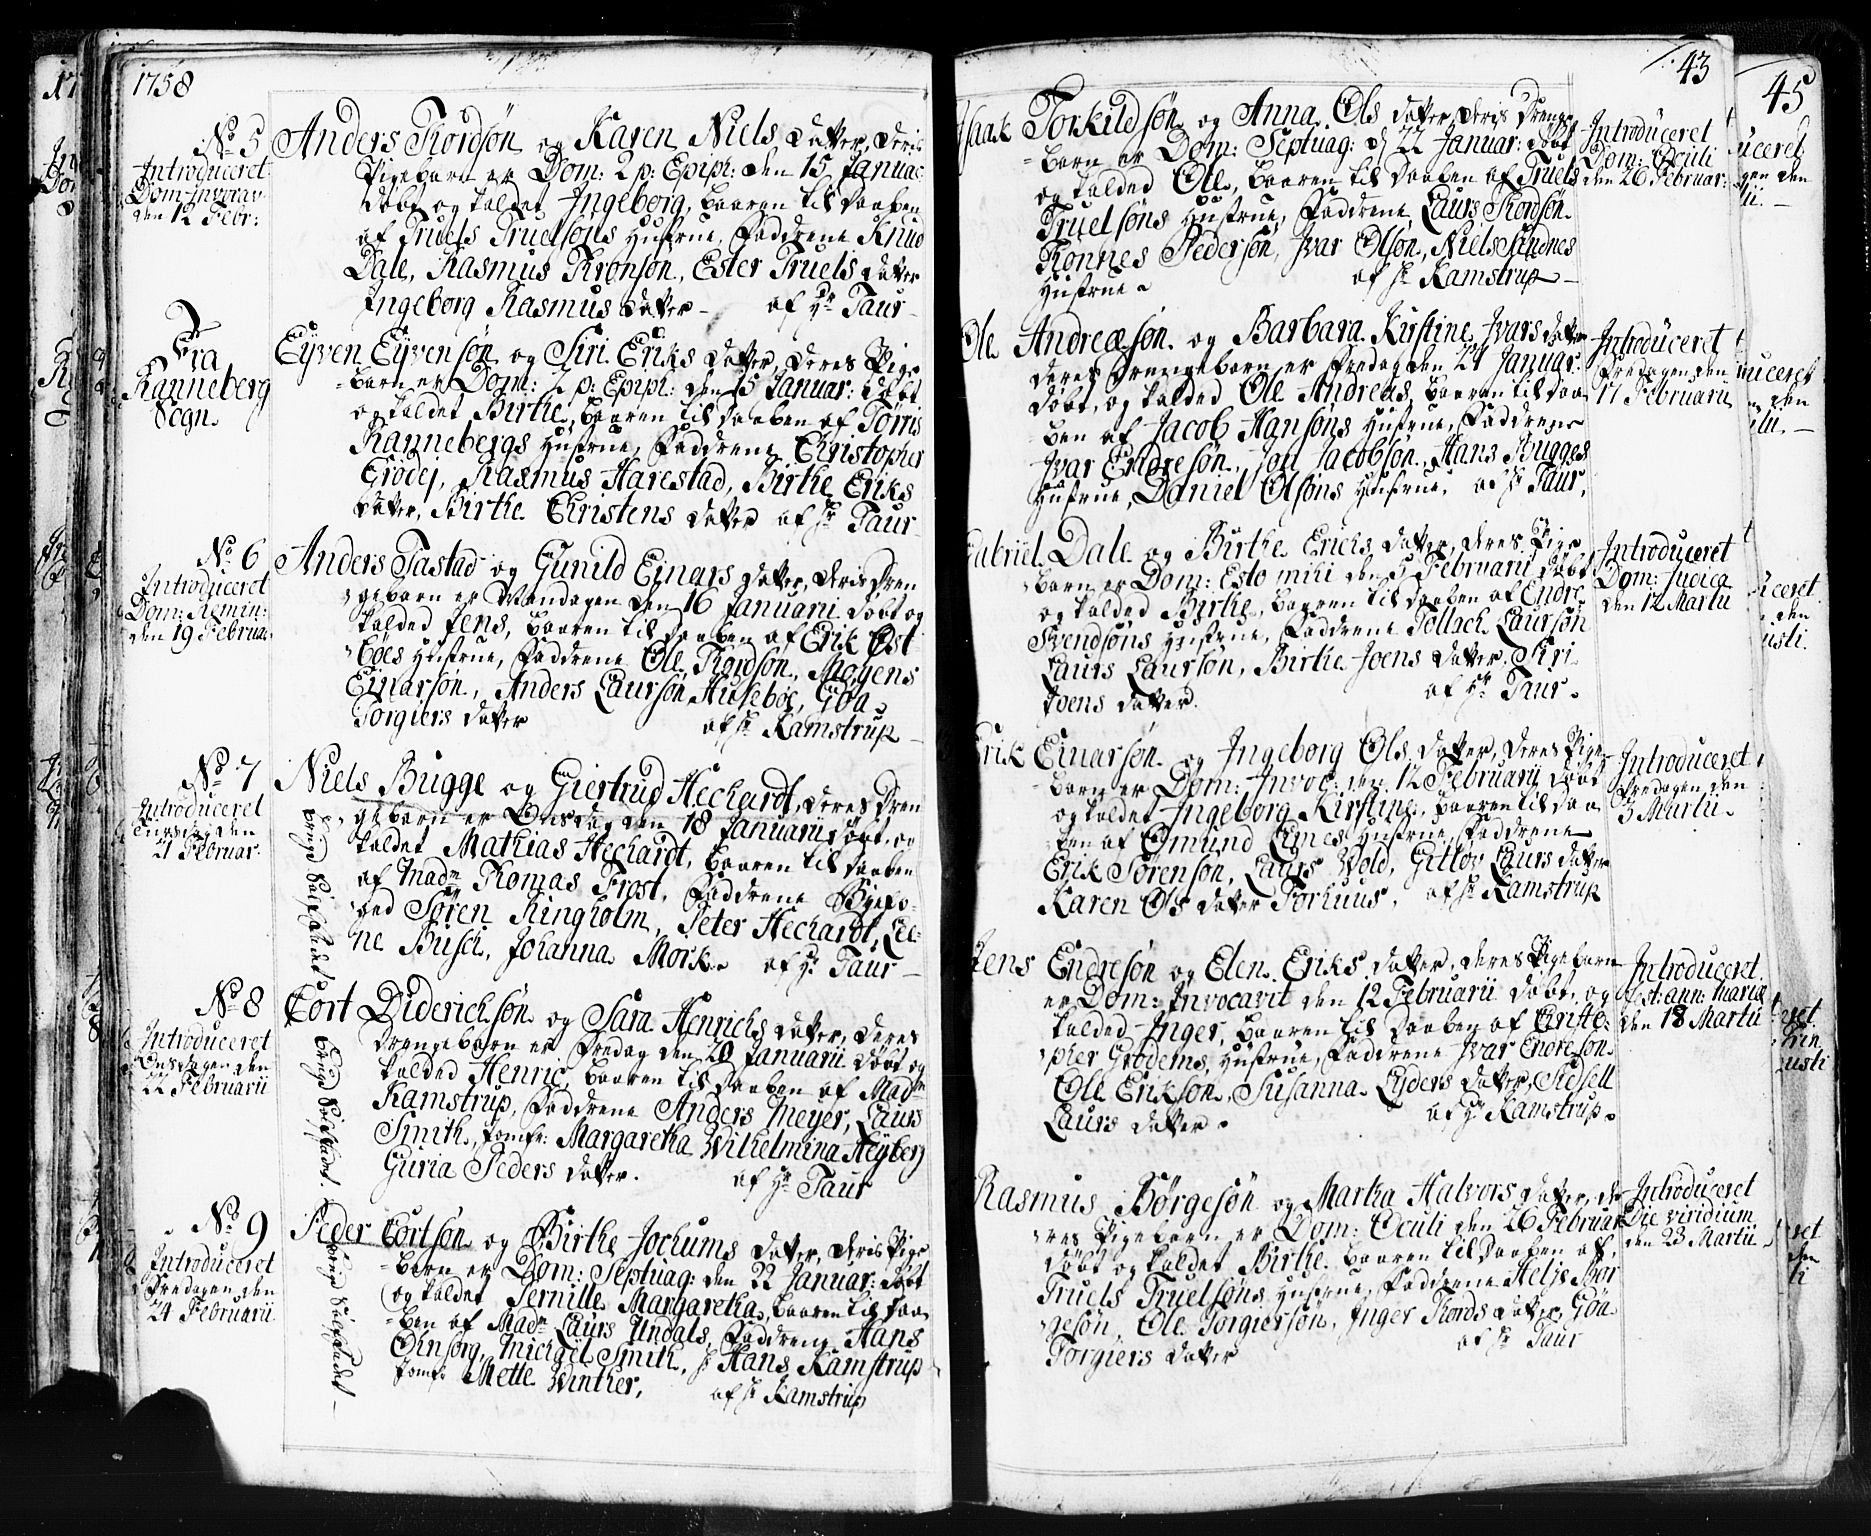 1758
No 5
Introduceret
Dom: Invocav
den 12 Febr:
Anders Thordsøn og Karen Niels datter, deris
Pigebarn er Dom: 2 p: Epiph: den 15 Januar
døbt og kaldet Ingeborg, baaren til daaben
af Truels Truelsøns Hustrue, Faddrene Knud
Dale, Rasmus Thronsøn, Ester Truels datter
Ingeborg Rasmus datter af Hr Taur
Fra
Ranneberg
Sogn.
Eyven Eyvensøn og Siri Eriks datter, deres Pige
barn er Dom: 2 p: Epiph: den 15 Januar: døbt
og kaldet Birthe, baaren til daaben af Torris
Rannebergs Hustrue, Faddrene Christopher
Grødej, Rasmus Harestad, Birthe Eriks
datter, Birthe Christens datter af Hr Taur
No 6
Introduceret
Dom: Remin:
den 19 Februa:
Anders Tastad og Gunild Einars datter, deris Dren
gebarn er Mandagen den 16 Januarii døbt og
kalded Jens, baaren til daaben af Erik Øst
bøes Hustrue, Faddrene Ole Thordsøn, Mogens
Einarsøn, Anders Laursøn Husebøe, Gøa
Torgiers datter af Hr Kamstrup
No 7
Introduceret
Tirsdag den
21 Februar.
Niels Bugge og Giertrud Hechardt, deres Dren
gebarn er Onsdag den 18 Januarii døbt og
kaldet Mathias Hechardt, baaren til daaben
af Madm Thomas Frost, Faddrene Byefo-
ged Søren Ringholm, Peter Hechardt, Le-
ne Busch, Johanna Mørk af Hr Taur
No 8
Introduceret
Onsdagen den
22 Februarii
Cort Diderichsøn og Sara Henrichs datter, deres
Drengebarn er Fredag den 20 Januarii døbt og
kalded Henric, baaren til daaben af Madm
Kamstrup, Faddrene Anders Meyer, Laurs
Smith, Jomfr: Margaretha Wilhelmina Heyberg
Guria Peders datter. af Hr Taur
No 9
Introduceret
Fredagen den
24 Februarii
Peder Cortsøn og Birthe Jochums datter, deris Pige
barn er Dom: Septuag: den 22 Januar: døbt
og kaldet Pernille Margaretha, baaren til daa
ben af Madm Laurs Undals, Faddrene Hans
Michael Smith, Hr Hans Kamstrup
Jomf: Mette Winther, af Hr Kamstrup
43
45
Isaak Torkildsøn og Anna Ols datter, deris Drenge
barn er Dom: Septuag: d 22 Januar: døbt
og kalded Ole, baaren til daaben af Truels
Truelsøns Hustrue, Faddrene Laurs Thordsøn
Thonnes Pedersøn, Ivar Olsøn, Niels Sundnes
Hustrue af Hr Kamstrup
Introduceret
Dom: Oculi
den 26 Februar:
Ole Andreæsøn og Barbara Kirstine Ivars datter
deres Drengebarn er Fredag den 27 Januar:
døbt, og kalded Ole Andreas, baaren til daa
ben af Jacob Hansøns Hustrue, Faddrene
Ivar Endresøn, Joh Jacobsøn, Hans Bugges
Hustrue, Daniel Olsøns Hustrue, af Hr Taur,
Introduceret
Fredagen den
17 Februarii
Gabriel Dale og Birthe Erichs datter, deres Pige
barn er Dom: Esto mihi den 5 Februarii døbt
og kalded Birthe, baaren til daaben af Endre
Svendsøns Hustrue, Faddrene Tollach Laursøn
Laurs Laursøn, Birthe Joens datter, Siri
Joens datter. af Hr Taur.
Introduceret
Dom: Judica
den 12 Martii
Erik Einarsøn og Ingeborg Ols datter, deres Pige
barn er Dom: Invoc: den 12 Februarii døbt
og kaldet Ingeborg Kirstine, baaren til daa
ben af Omund Eines Hustrue, Faddrene
Erik Sørensøn, Laurs Wold, Gitlov Laurs datter
Karen Ols datter Forhuus, af Hr Kamstrup
Introduceret
Fredagen den
3 Martii
Jens Endresøn og Elen Eriks datter, deres Pigebarn
er Dom: Invocavit den 12 Februarii døbt, og
kalded Inger, baaren til daaben af Christo-
pher Grødems Hustrue, Faddrene Ivar Endresøn
Ole Eriksøn, Susanna Lyders datter, Sidsell
Laurs datter. af Hr Kamstrup
Introduceret
Fest: ann: Mariæ
den 18 Martii
Rasmus Børgesøn og Martha Halvors datter, de
res Pigebarn er Dom: Oculi den 26 Februar
døbt og kaldet Birthe, baaren til daaben af
Truels Truelsøns Hustrue, Faddrene Helje Bør
gesøn, Ole Torgiersøn, Inger Thords datter, Gøa
Torgiers datter af Hr Taur
Introduceret
Die viridium
den 23 Martii